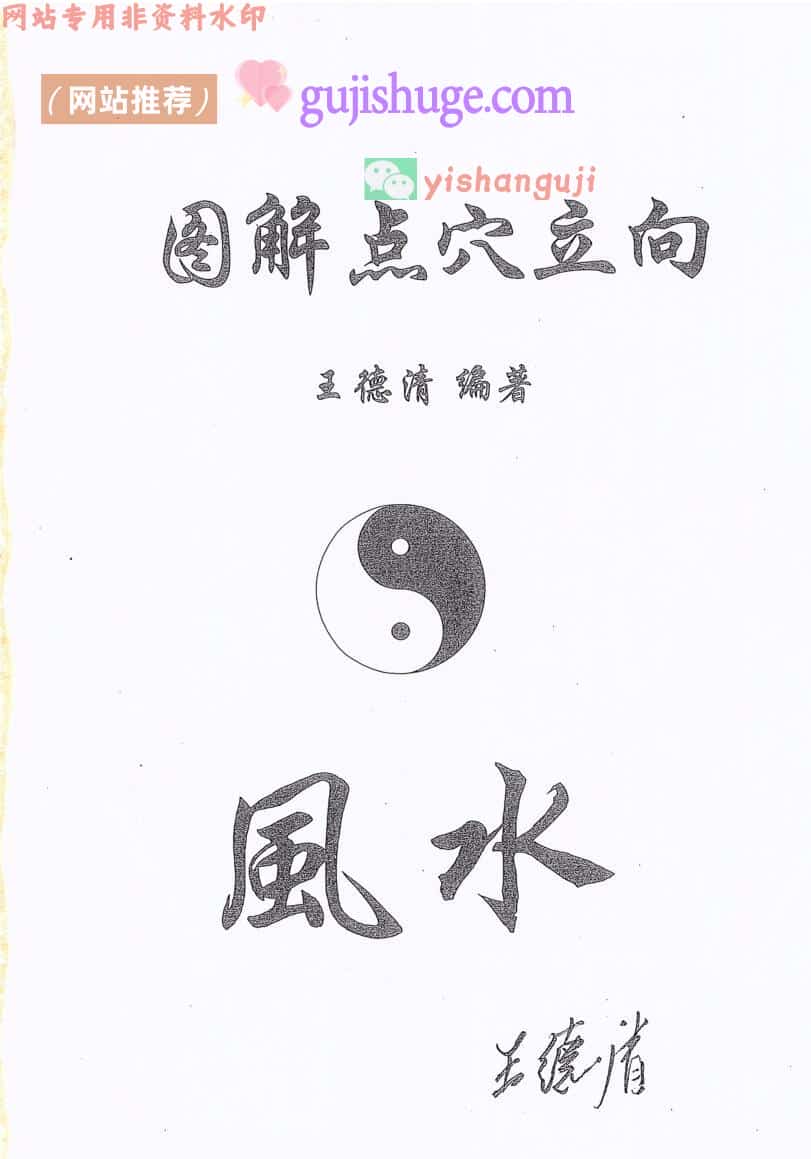 网站专用非资料水印
(网站推荐) gujishuge.com
yishanguji
图解点穴立向
王德清 编著
風水
王德清